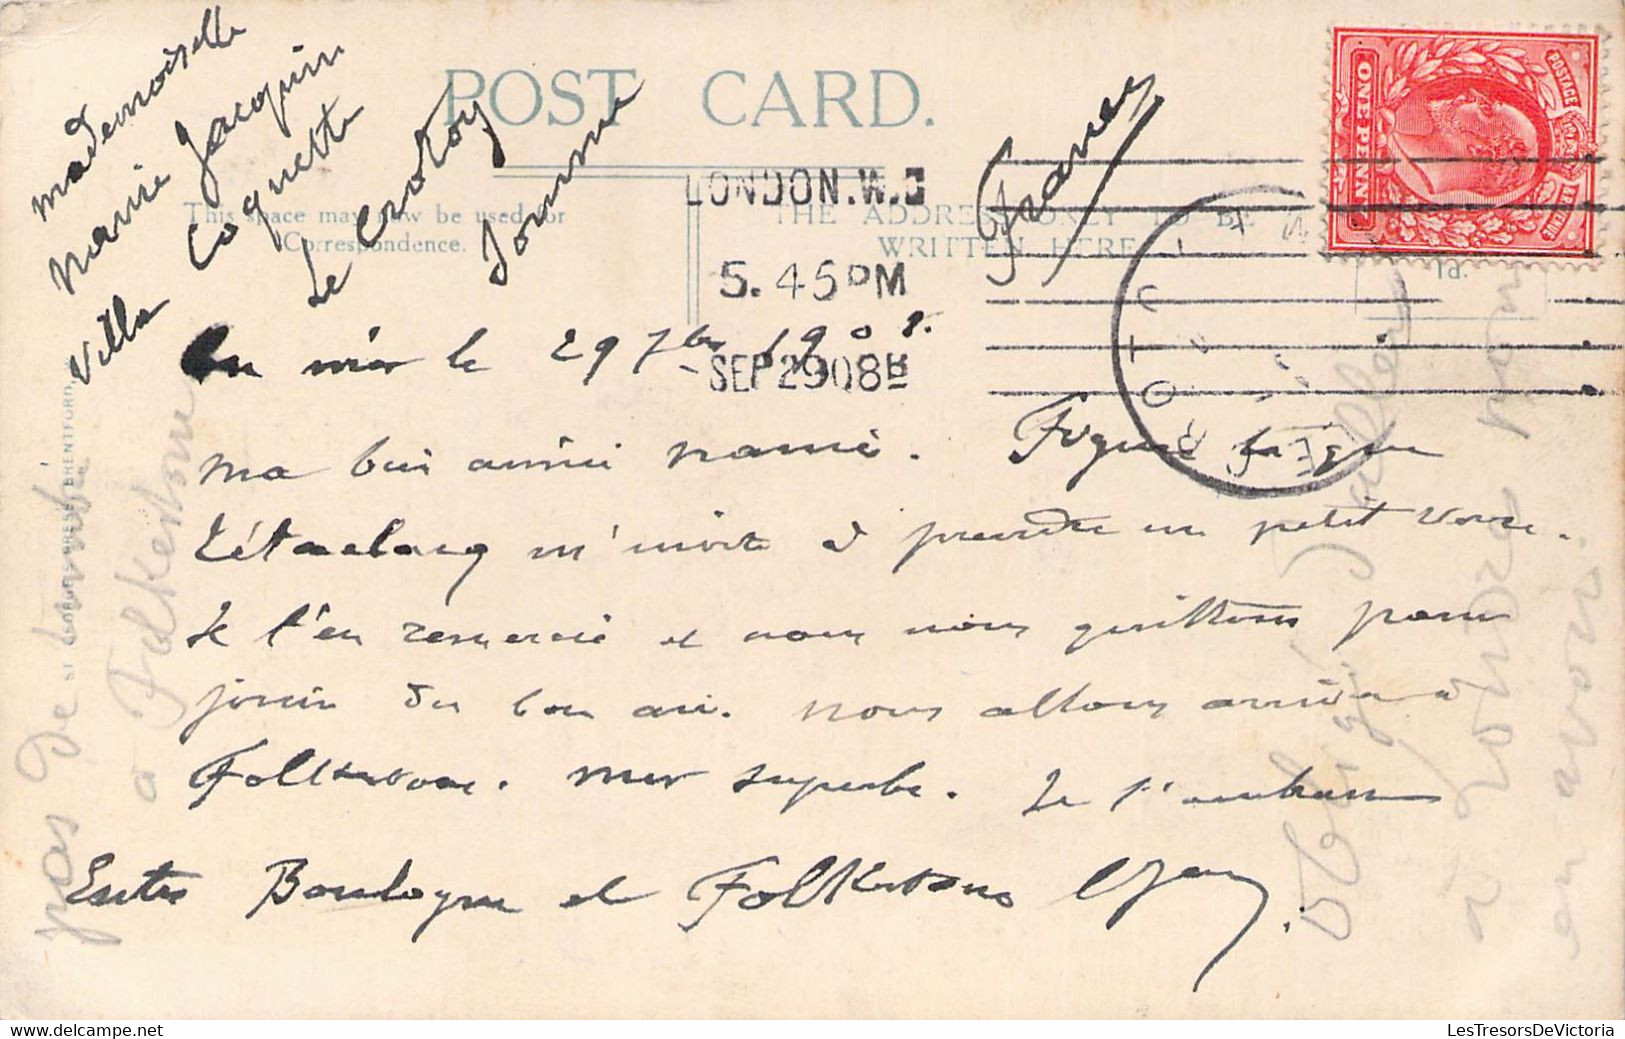 Mademoiselle
Marie Jacquin
Villa Coquette
Le Crotoy
Somme
France
POST CARD.
This space may now be used for
Correspondence.
THE ADDRESS ONLY TO BE
WRITTEN HERE
LONDON. W.
5.45 PM
SEP 29 08
POSTAGE
ONE PENNY
1d.
En mer le 29 7bre 1908.
Ma bien aimée Mamé. Figure toi que
m'invite à prendre un petit verre.
Je l'en remercie et nous nous quittons pour
jouir du bon air. Nous allons arriver à
Folkestone. Mer superbe. Je t'embrasse
Entre Boulogne et Folkestone
pas de
à Folkestone
Obligé d'aller
à Londres pour
en avoir.
ST GEORGE'S PRESS BRENTFORD
LesTresorsDeVictoria